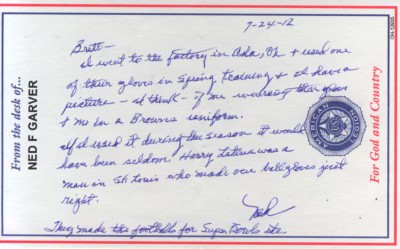 From the desk of...
NED F GARVER
7-24-12
Brett—
I went to the factory in Ada, Oh + used one
of their gloves in Spring Training + I have a
picture – I think – of me wearing their glove
+ me in a Browns uniform.
If I used it during the season it would
have been seldom. Harry Latina was a
man in St Louis who made our ball gloves just
right.
Ned
They made the footballs for Super Bowls etc
AMERICAN LEGION
For God and Country